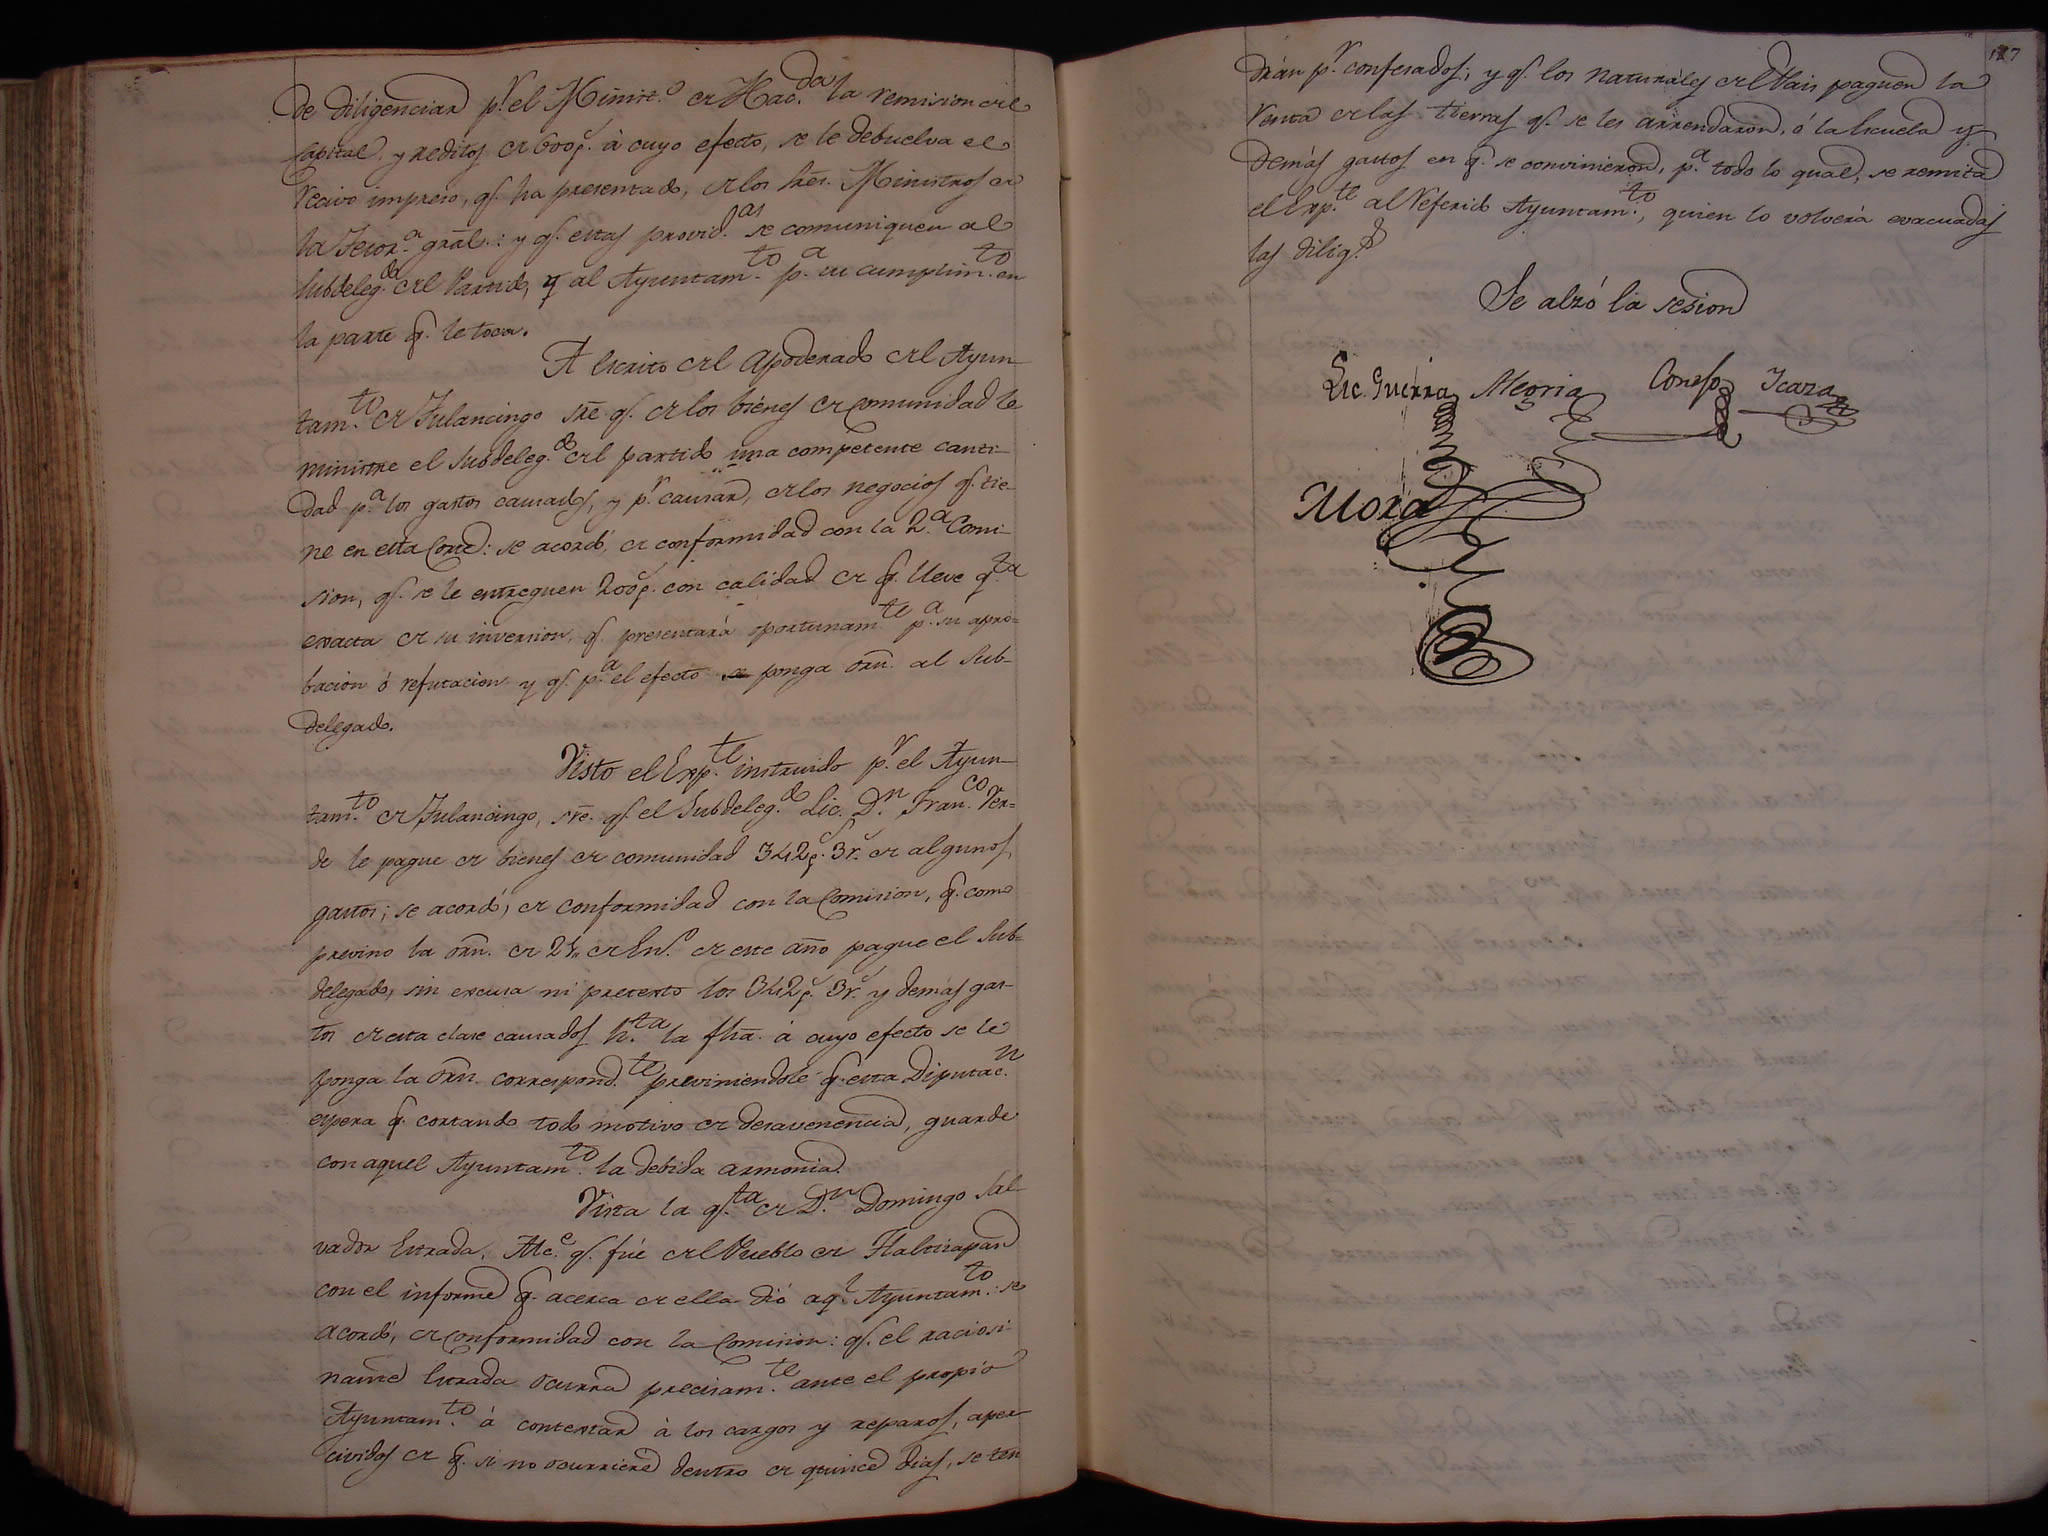 de diligenciar p.r el Minist.o de Hac.da la remision del
capital, y reditos de 600p.s à cuyo efecto, se le debuelva el
recivo impreso, q.e ha presentado, de los Sres. Ministros de
la Tesor.a gral.: y q.e estas provid.as se comuniquen al
Subdeleg.do del Partido, y al Ayuntam.to p.a su cumplim.to en
la parte q.e le toca.
A escrito del Apoderado del Ayun-
tam.to de Tulancingo sre. q.e de los biénes de comunidad le
ministre el Subdeleg.do del partido una competente canti-
dad p.a los gastos causados, y p.r causar, de los negocios q.e tie-
ne en esta Corte: se acordó, de conformidad con la 2.a Comi-
sion, q.e se le entreguen 200p.s con calidad de q.e lleve q.ta
exacta de su inversion, q.e presentará oportunam.te p.a su apro-
bacion ó refutacion y q.e p.a el efecto se ponga orn. al Sub-
delegado.
Visto el Exp.te instruido p.r el Ayun-
tam.to de Tulancingo, sre. q.e el Subdeleg.do Lic. D.n Fran.co Ver-
de le pague de bienes de comunidad 342p.s 3r.s de algunos
gastos; se acordó, de conformidad con la Comision, q.e como
previno la orn. de 21,, de En.o de este año pague el Sub-
delegado, sin excusa ni pretexto los 342p.s 3r.s y demás gas-
tos de esta clase causados h.ta la fha. à cuyo efecto se le
ponga la orn. correspond.te previniendole q.e esta Diputac.n
espera q.e cortando todo motivo de desavenencia, guarde
con aquel Ayuntam.to la debida armonia.
Vista la q.ta de D.n Domingo Sal-
vador Estrada, Alc.e q.e fué del Pueblo de Tlaltizapan
con el informe q.e acerca de ella dió aq.l Ayuntam.to: se
acordó, de conformidad con la Comision: q.e el
Estrada ocurra precisam.te ante el propio
Ayuntam.to à contestar à los cargos y reparos, aper-
cividos de q.e si no ocurriere dentro de quince dias, se ten
127
drán p.r confesados; y q.e los naturáles del Pais paguen la
renta de las tierras q.e se les arrendaron, ó la Escuela y
demás gastos en q.e se convinieron, p.a todo lo qual, se remita
el Exp.te al referido Ayuntam.to, quien lo volverá evacuadas
las dilig.s
Se alzó la sesion
Lic. Guerra Alegria Conejo Icaza
Mora